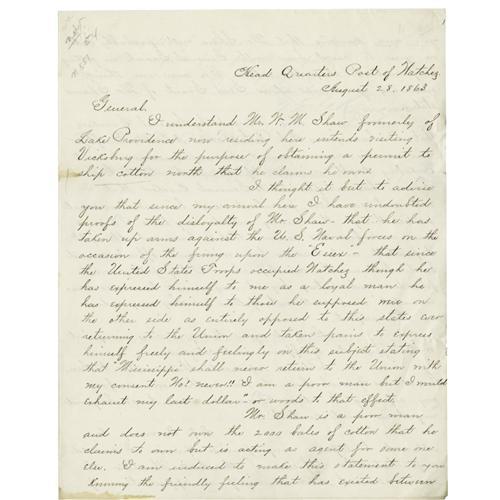 Head Quarters Post of Natchez
August 28. 1863
General,
I understand Mr. W. M. Shaw formerly of
Lake Providence now residing here intends visiting
Vicksburg for the purpose of obtaining a permit to
ship cotton north that he claims he owns
I thought it but to advise
you that since my arrival here I have undoubted
proofs of the disloyalty of Mr Shaw - that he has
taken up arms against the U. S. Naval forces on the
occasion of the firing upon the "Essex - that since
the United States Troops occupied Natchez though he
has expressed himself to me as a loyal man he
has expressed himself to those he supposed were on
the other side as entirely opposed to this states ever
returning to the Union and taken pains to express
himself freely and feelingly on this subject stating
that "Mississippi shall never return to the Union with
my consent. No! never!! I am a poor man but I would
exhaust my last dollar" - or words to that effect.
Mr. Shaw is a poor man
and does not own the 2000 bales of cotton that he
claims to own but is acting as agent for some one
else. I am induced to make this statement to you
knowing the friendly feeling that has existed between